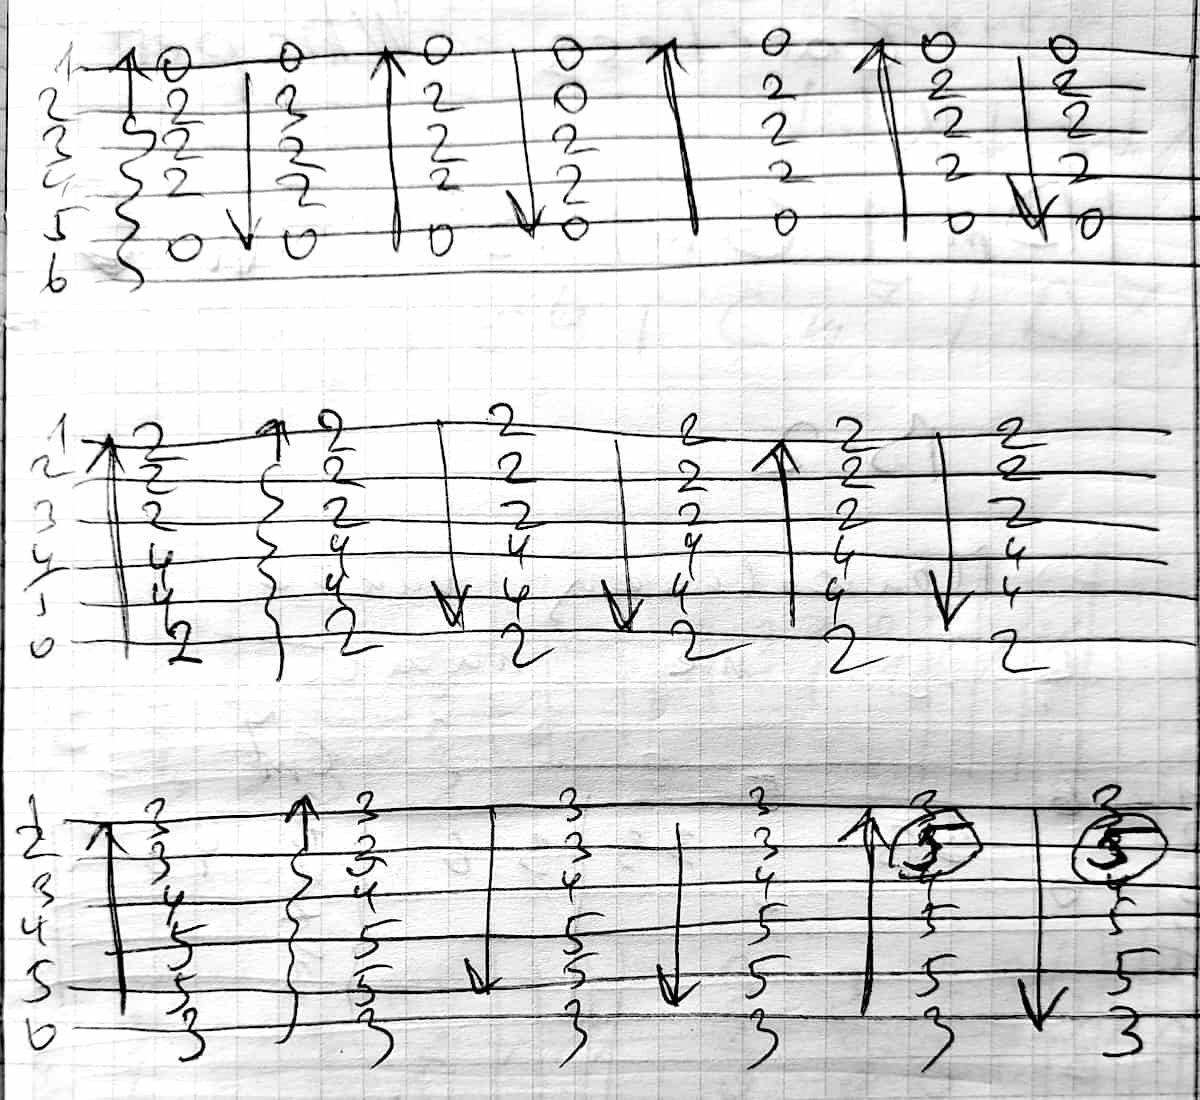 1 0 0 0 0 0 0 0
2 2 3 2 0 2 2 2
3 2 2 2 2 2 2 2
4 2 2 2 2 2 2 2
5 0 0 0 0 0 0 0
6
1 2 2 2 2 2 2
2 2 2 2 2 2 2
3 2 2 2 2 2 2
4 4 4 4 4 4 4
5 4 4 4 4 4 4
6 2 2 2 2 2 2
1 3 3 3 3 3 3
2 3 3 3 3 5 5
3 4 4 4 4 4 4
4 5 5 5 5 5 5
5 5 5 5 5 5 5
6 3 3 3 3 3 3